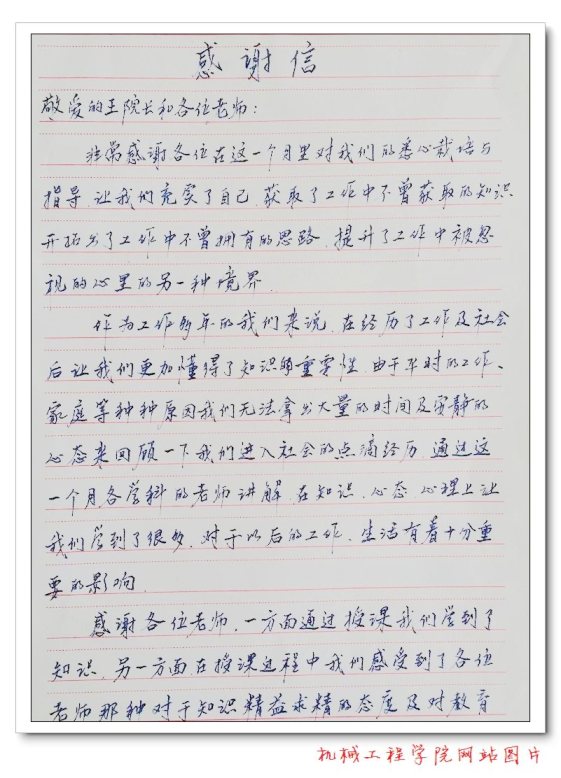 感谢信
敬爱的王院长和各位老师：
非常感谢各位在这一个月里对我们的悉心栽培与
指导，让我们充实了自己，获取了工作中不曾获取的知识
开拓出了工作中不曾拥有的思路，提升了工作中被忽
视的心里的另一种境界.
作为工作多年的我们来说，在经历了工作及社会
后让我们更加懂得了知识的重要性，由于平时的工作、
家庭等种种原因我们无法拿出大量的时间及安静的
心态来回顾一下我们进入社会的点滴经历，通过这
一个月各学科的老师讲解，在知识、心态、心理上让
我们学到了很多，对于以后的工作、生活有着十分重
要的影响.
感谢各位老师，一方面通过授课我们学到了
知识，另一方面在授课过程中我们感受到了各位
老师那种对于知识精益求精的态度及对教育
机械工程学院网站图片